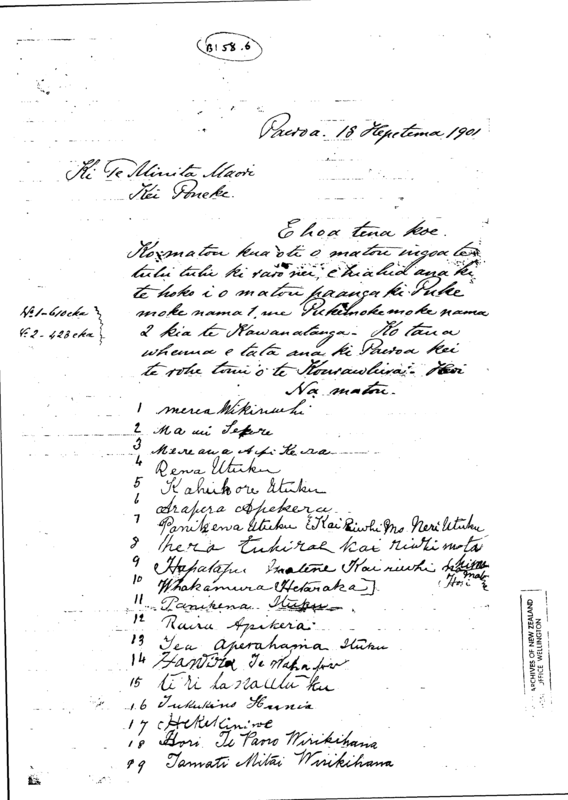 B158.6
Paeroa. 18 Hepetema 1901
Ki Te Minita Maori
Kei Poneke.
E hoa tena koe.
Ko matou kua oti o matou ingoa te
tuhi tuhi ki raro nei, e hiahia ana ki
te hoko i o matou paanga ki Puke
moke nama 1, me Pukemokemoke nama
2 kia te Kawanatanga. Ko taua
whenua e tata ana ki Paeroa kei
te rohe o te Heoi
Na matou.
No 1 - 610 eka
No 2 - 423 eka
1 merea Wikiriwhi
2
3 Mereana Api Kera
4 Rewa Utuku
5 Kahukore Utuku
6 Arapera Apekera
7 Panikena Utuku E Kai Riwhi Mo Neri Utuku
8 hera kai riwhi mota
9 Hapatapu Kai riwhi
10 Whakamura [Hetaraka] Hori
11 Panikena Ituku
12 Rairu Apikera
13 Tea Aperahama Ituku
14 Te
15
16 Tukukino
17
18 Hori Te Paoro Wirikihana
19 Tamati Mitai Wirikihana
ARCHIVES OF NEW ZEALAND
OFFICE WELLINGTON